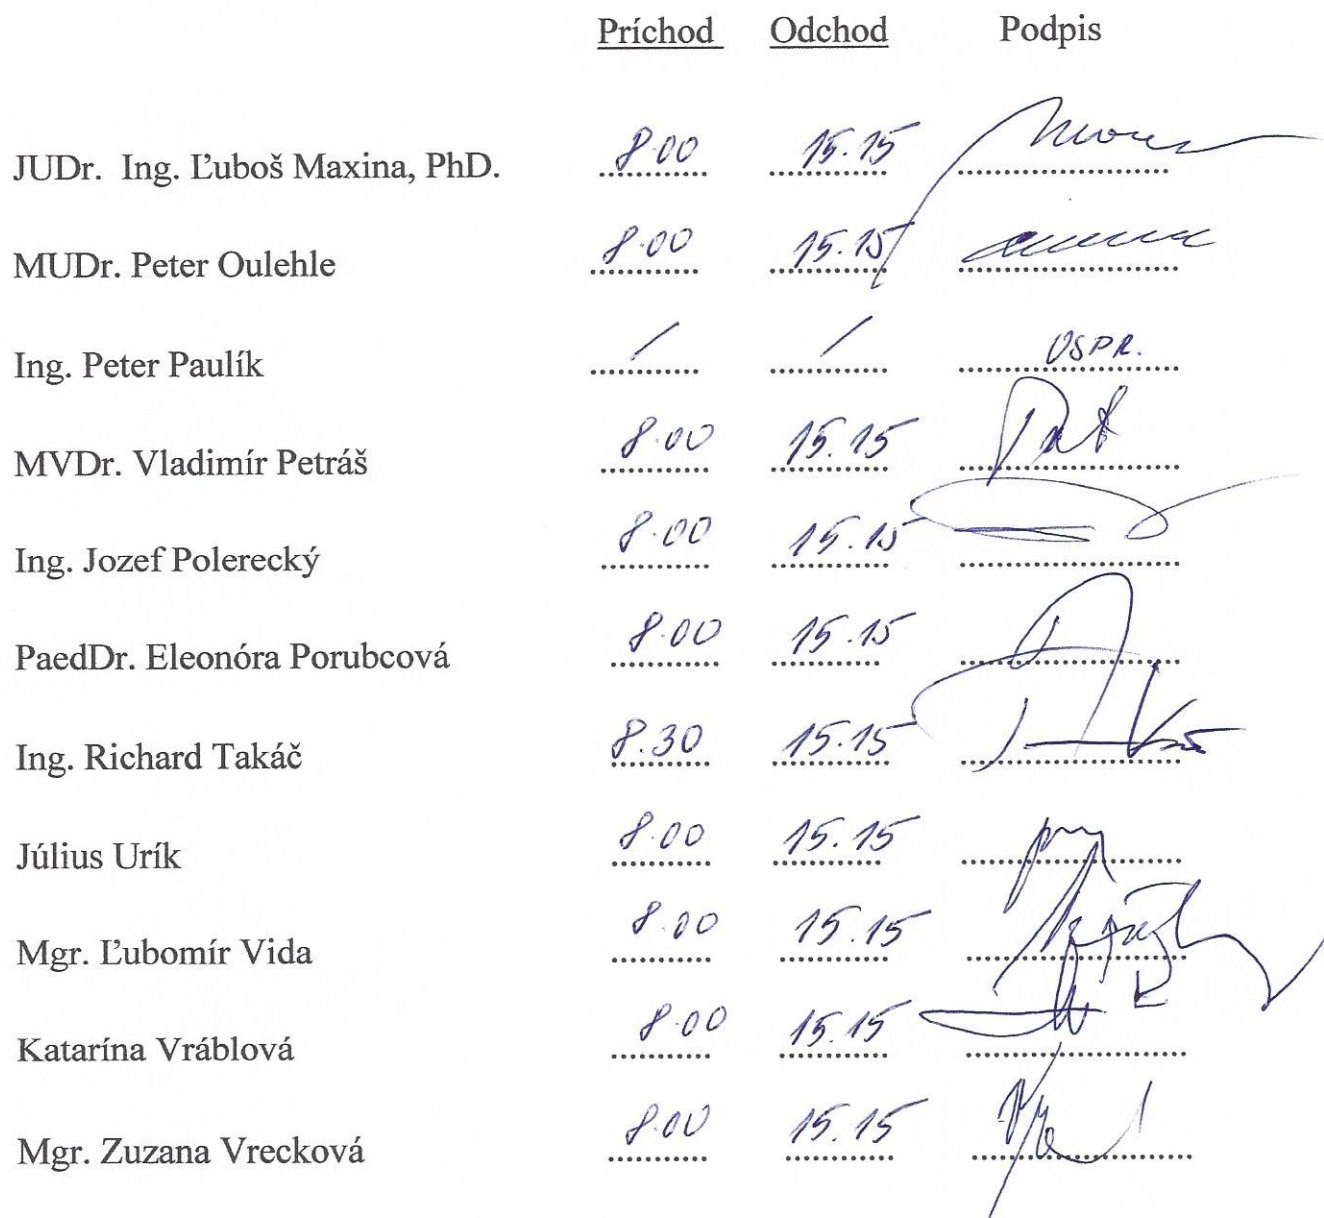 Príchod Odchod Podpis
JUDr. Ing. Ľuboš Maxina, PhD. 8.00 15.15
MUDr. Peter Oulehle 8.00 15.15
Ing. Peter Paulík / / OSPR.
MVDr. Vladimír Petráš 8.00 15.15
Ing. Jozef Polerecký 8.00 15.15
PaedDr. Eleonóra Porubcová 8.00 15.15
Ing. Richard Takáč 8.30 15.15
Július Urík 8.00 15.15
Mgr. Ľubomír Vida 8.00 15.15
Katarína Vráblová 8.00 15.15
Mgr. Zuzana Vrecková 8.00 15.15